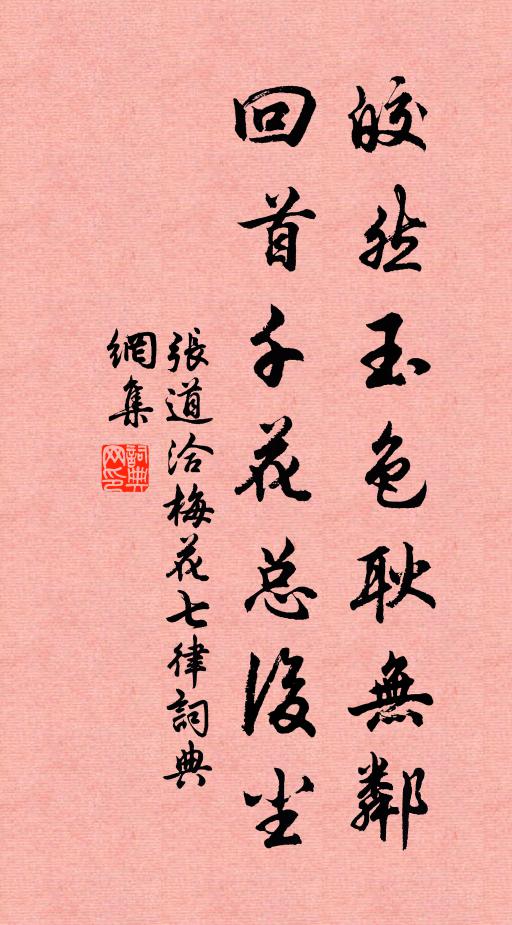 皎然玉色耿無鄰
回首千花总後尘
張道洽梅花七律詞典
網集
詞典
网印